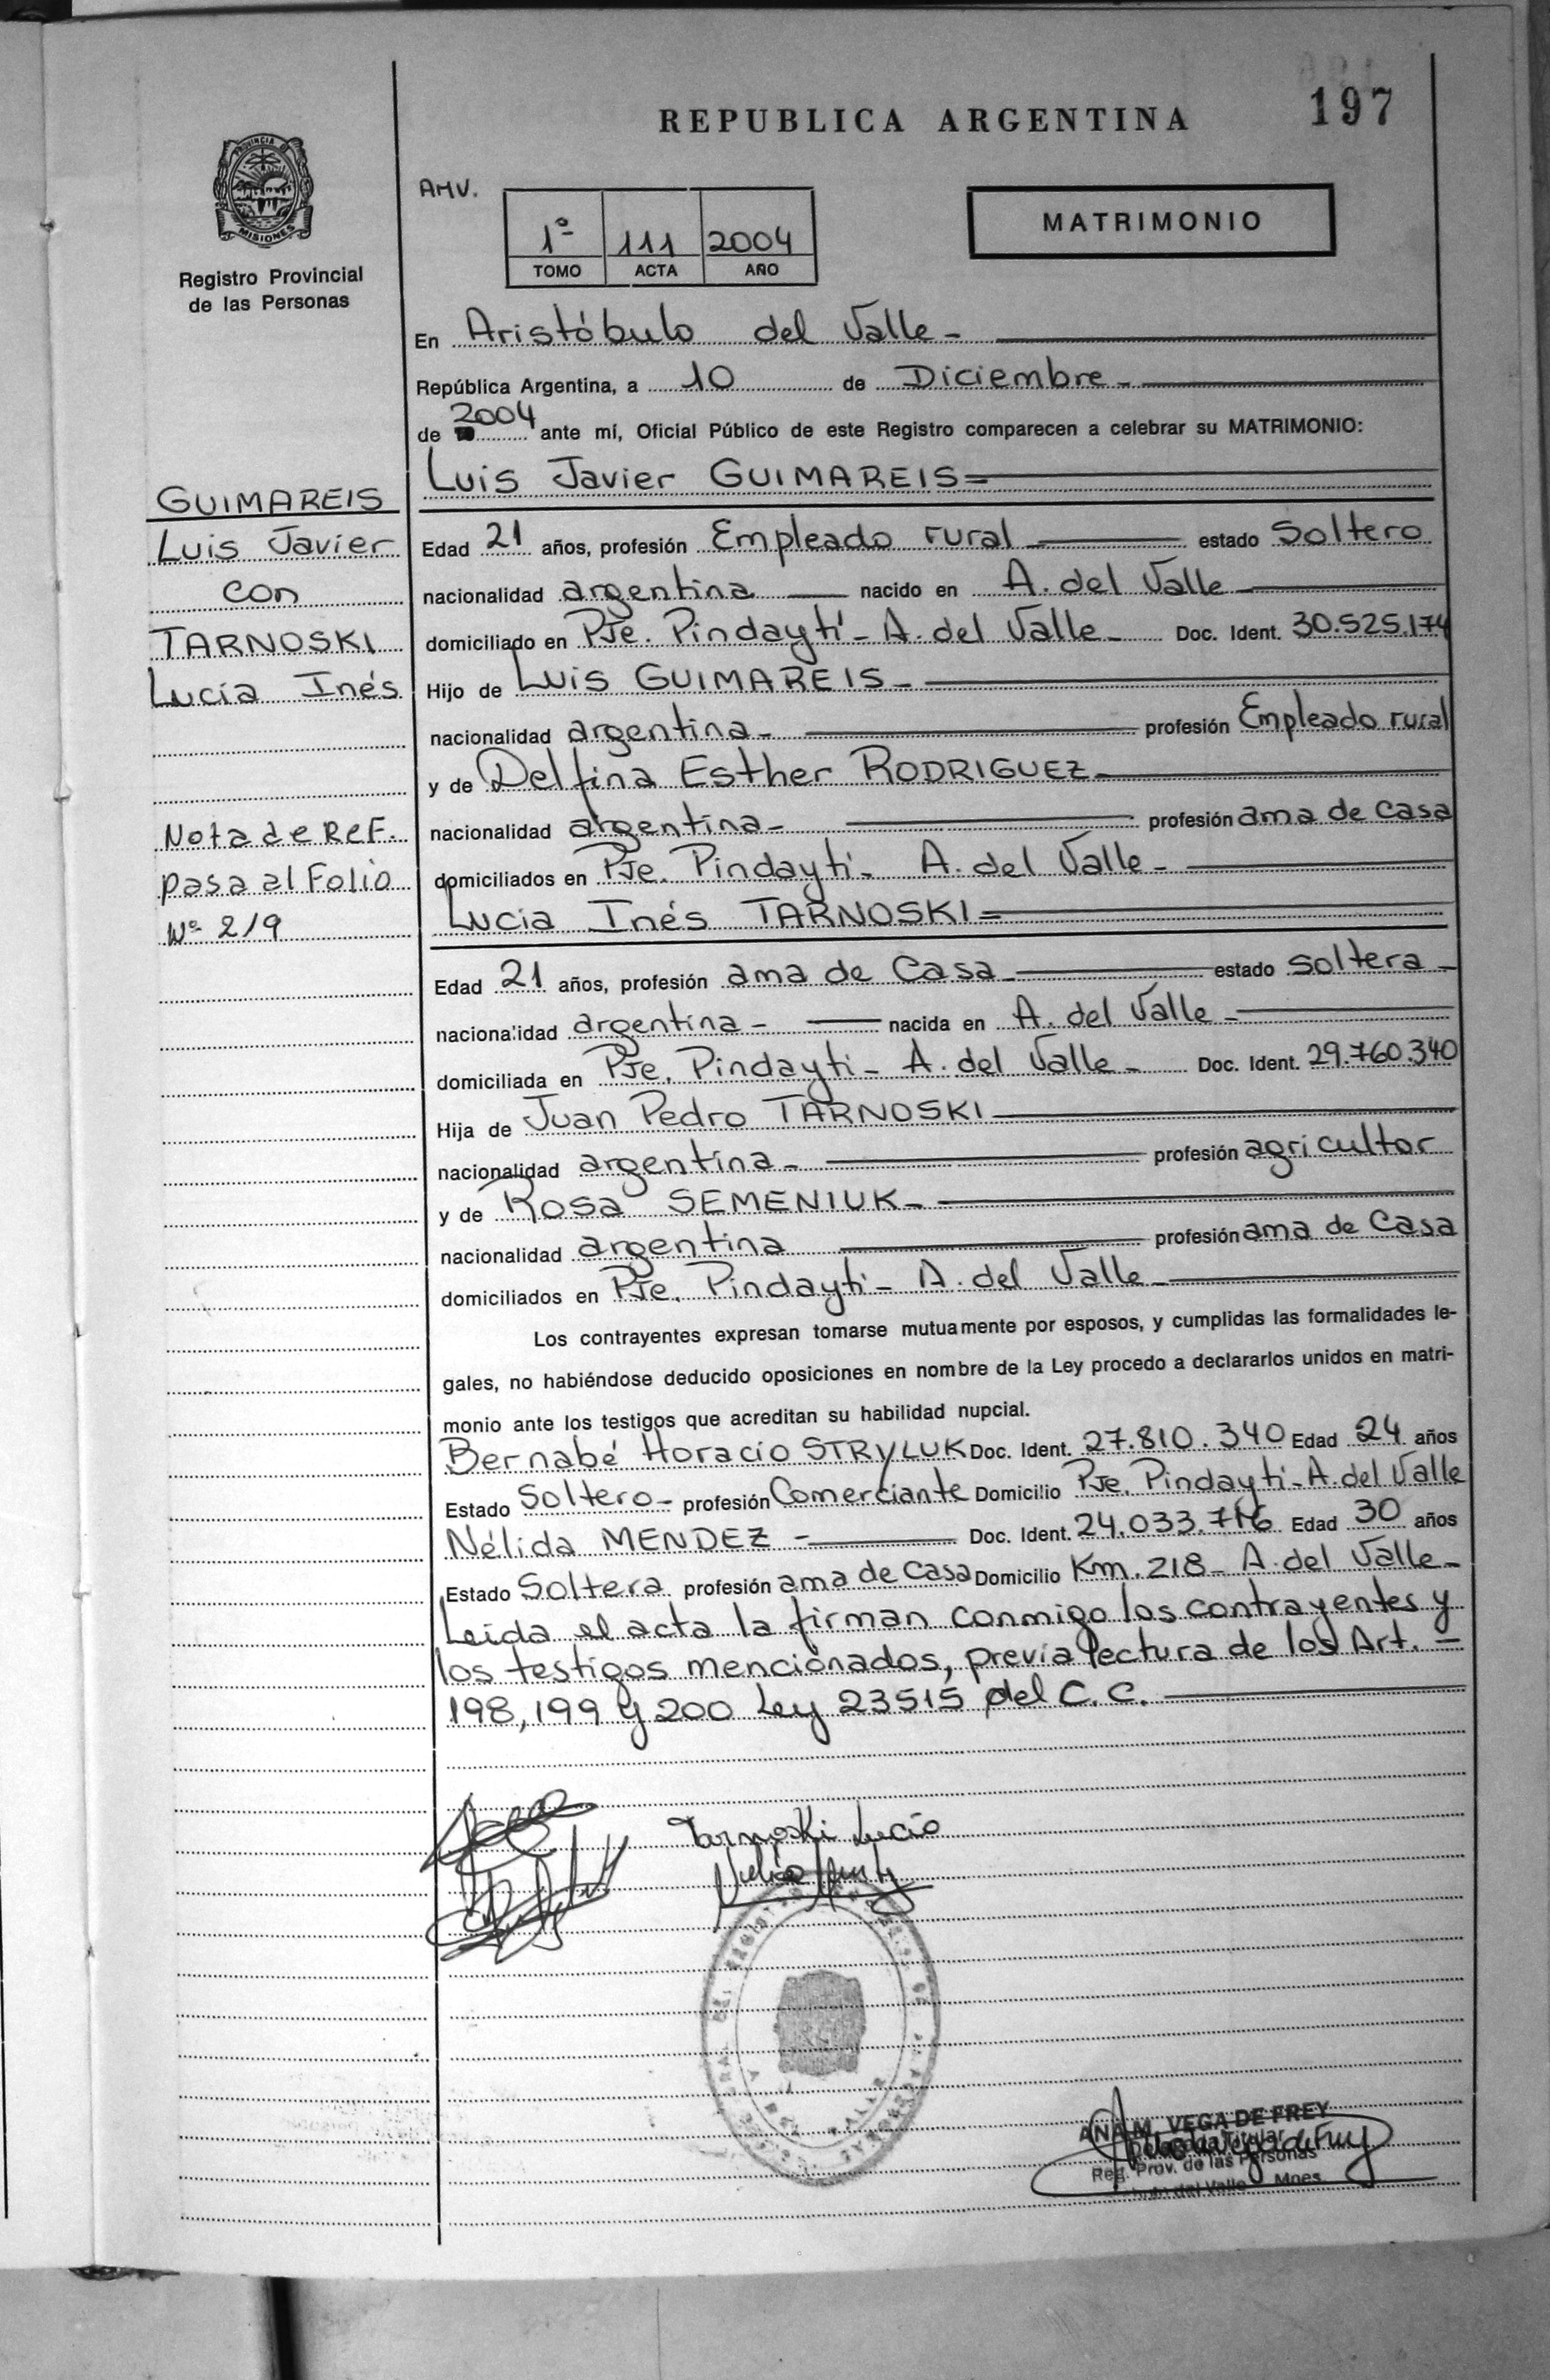 197
REPUBLICA ARGENTINA
PROVINCIA DE
MISIONES
Registro Provincial
de las Personas
AMV.
1º 111 2004
TOMO ACTA AÑO
MATRIMONIO
En Aristóbulo del Valle -
República Argentina, a 10 de Diciembre -
de 2004 ante mí, Oficial Público de este Registro comparecen a celebrar su MATRIMONIO:
Luis Javier GUIMAREIS=
GUIMAREIS
Luis Javier
con
TARNOSKI
Lucía Inés
Nota de Ref.
pasa al Folio
Nº 219
Edad 21 años, profesión Empleado rural estado Soltero
nacionalidad argentina nacido en A. del Valle
domiciliado en Pje. Pindaytí - A. del Valle - Doc. Ident. 30.525.174
Hijo de Luis GUIMAREIS -
nacionalidad argentina - profesión Empleado rural
y de Delfina Esther RODRIGUEZ
nacionalidad argentina - profesión ama de Casa
domiciliados en Pje. Pindaytí - A. del Valle -
Lucía Inés TARNOSKI=
Edad 21 años, profesión ama de Casa estado Soltera -
nacionalidad argentina - nacida en A. del Valle -
domiciliada en Pje. Pindaytí - A. del Valle - Doc. Ident. 29.760.340
Hija de Juan Pedro TARNOSKI
nacionalidad argentina - profesión agricultor
y de Rosa SEMENIUK -
nacionalidad argentina profesión ama de Casa
domiciliados en Pje. Pindaytí - A. del Valle -
Los contrayentes expresan tomarse mutuamente por esposos, y cumplidas las formalidades le-
gales, no habiéndose deducido oposiciones en nombre de la Ley procedo a declararlos unidos en matri-
monio ante los testigos que acreditan su habilidad nupcial.
Bernabé Horacio STRYLUK Doc. Ident. 27.810.340 Edad 24 años
Estado Soltero - profesión Comerciante Domicilio Pje. Pindaytí - A. del Valle
Nélida MENDEZ - Doc. Ident. 24.033.716 Edad 30 años
Estado Soltera profesión ama de Casa Domicilio Km. 218 - A. del Valle -
Leída el acta la firman conmigo los contrayentes y
los testigos mencionados, previa lectura de los Art. -
198, 199 y 200 Ley 23515 del C.C.
Tarnoski Lucía
ANA M. VEGA DE FREY
Titular
Reg. Prov. de las Personas
del Valle - Mnes.